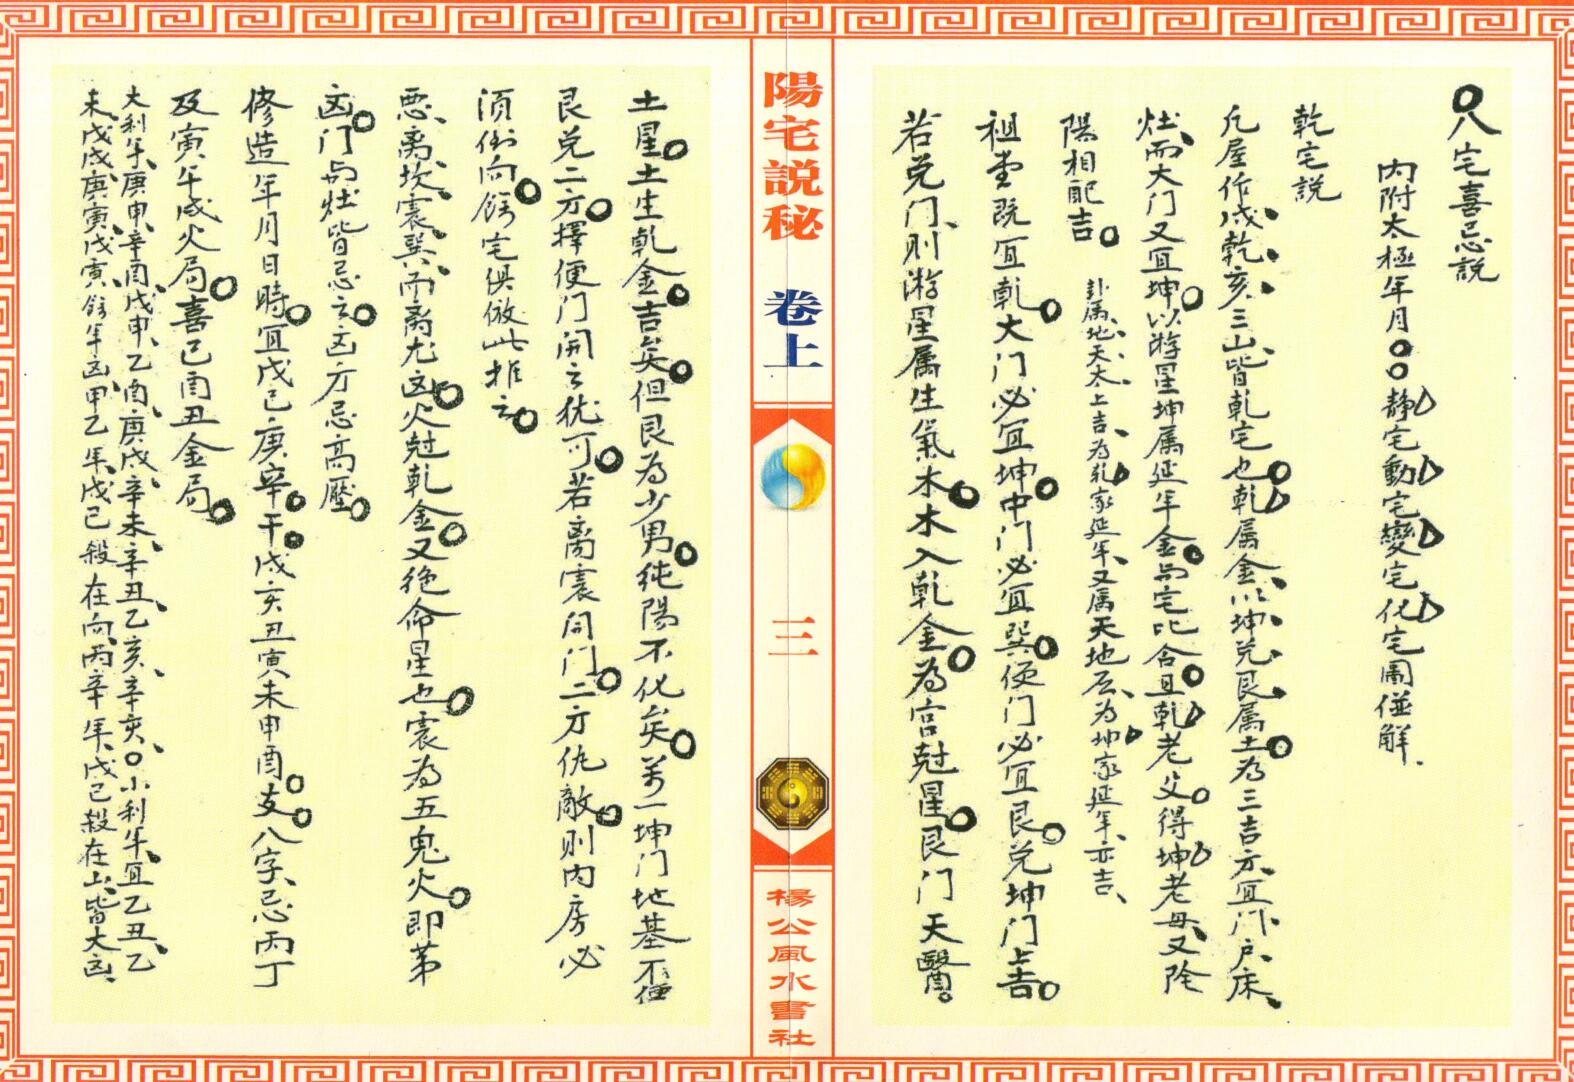 八宅喜忌說
內附太極年月静宅動宅變宅化宅圖併解
乾宅說
凡屋作戌乾亥三山皆乾宅也乾属金以坤兌艮属土為三吉方宜门户床
灶而大门又宜坤以游星坤属延年金与宅比合且乾老父得坤老母又陰
陽相配吉 卦属地天太上吉為乾家延年又属天地否為坤家延年亦吉
祖堂既宜乾大门必宜坤中门必宜巽便门必宜艮兌坤门上吉
若兌门则游星属生氣木木入乾金為宫尅星艮门天醫
陽宅説秘 卷上 三 楊公風水書社
土星土生乾金吉矣但艮為少男纯陽不化矣若一坤门地基不便
艮兌二方擇便门開之犹可若离震同门二方仇敵则内房必
須倒向餘宅俱倣此推之
悪离坎震巽而离尤凶火尅乾金又绝命星也震為五鬼火即第
凶门与灶皆忌之凶方忌高壓
修造年月日時宜戊己庚辛干戌亥丑寅未申酉支八字忌丙丁
及寅午戌火局喜巳酉丑金局
大利年庚申辛酉戊申乙酉庚戌辛未辛丑乙亥辛亥小利年宜乙丑乙
未戊戌庚寅戊寅餘年凶甲乙年戊己殺在向丙辛年戊己殺在山皆大凶